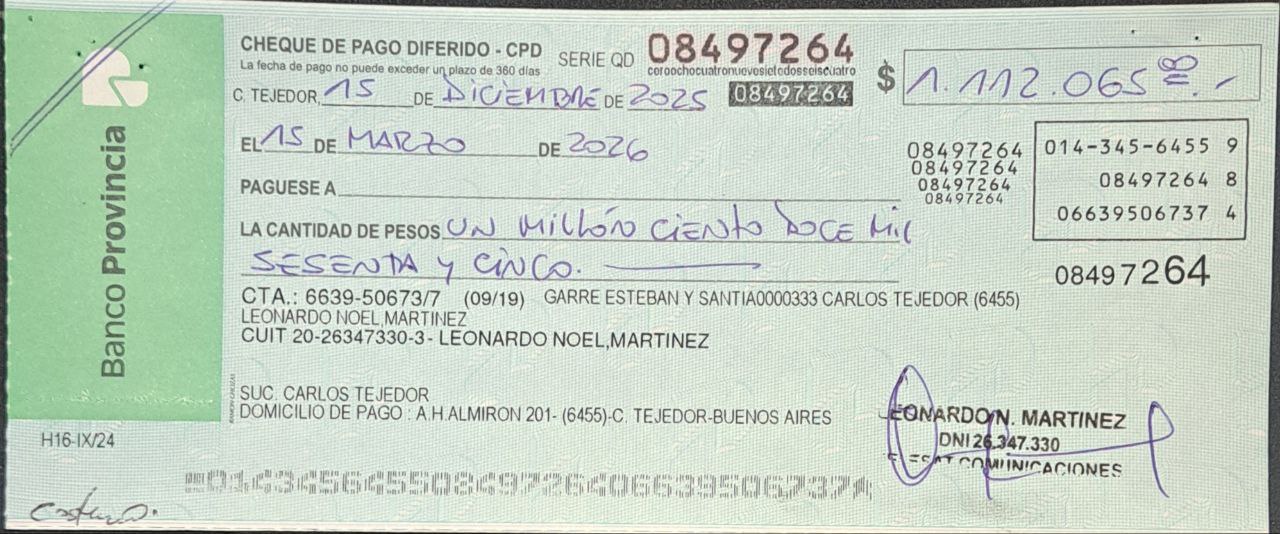 CHEQUE DE PAGO DIFERIDO - CPD SERIE QD 08497264
La fecha de pago no puede exceder un plazo de 360 días ceroochocuatronuevesietedosseiscuatro
$ 1.112.065 00.-
C. TEJEDOR, 15 DE DICIEMBRE DE 2025 08497264
EL 15 DE MARZO DE 2026
08497264
08497264
08497264
08497264
014-345-6455 9
08497264 8
06639506737 4
PAGUESE A
LA CANTIDAD DE PESOS UN MILLÓN CIENTO DOCE MIL
SESENTA Y CINCO.
08497264
CTA.: 6639-50673/7 (09/19) GARRE ESTEBAN Y SANTIA0000333 CARLOS TEJEDOR (6455)
LEONARDO NOEL,MARTINEZ
CUIT 20-26347330-3 - LEONARDO NOEL,MARTINEZ
Banco Provincia
SUC. CARLOS TEJEDOR
DOMICILIO DE PAGO : A.H.ALMIRON 201- (6455)-C. TEJEDOR-BUENOS AIRES
LEONARDO N. MARTINEZ
DNI 26.347.330
COMUNICACIONES
H16-IX/24
01434564550849726406639506737